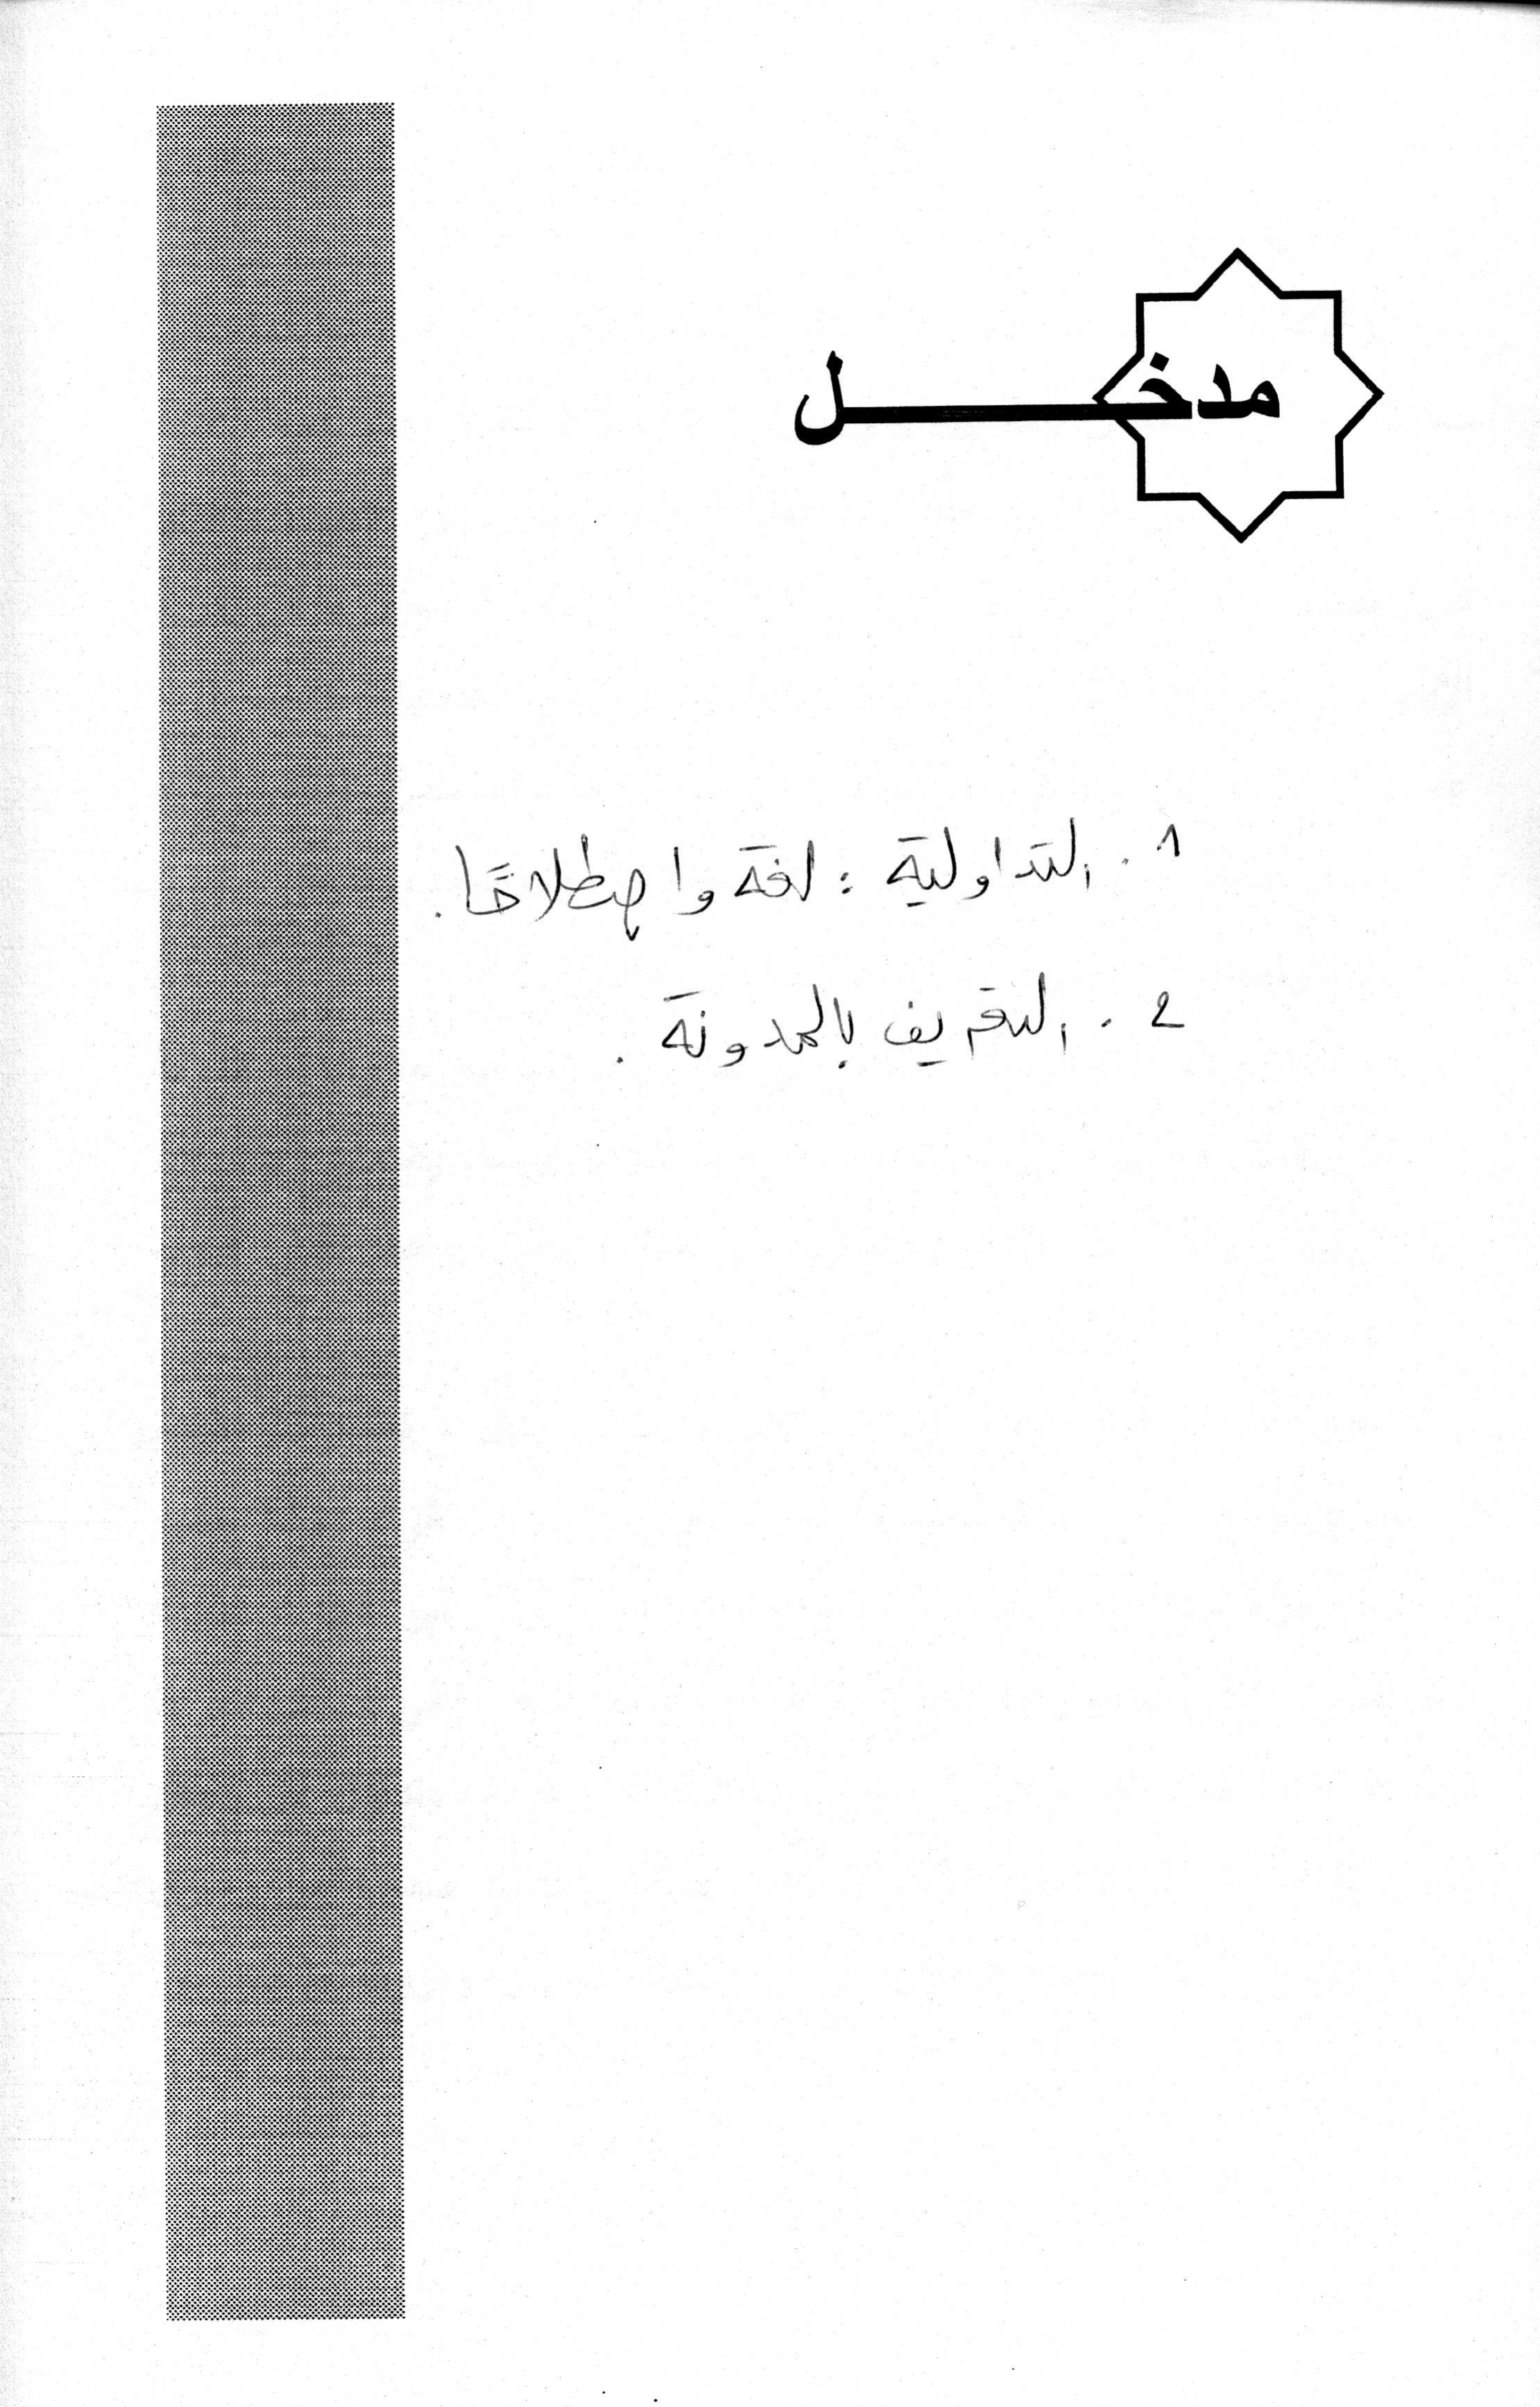 مدخـــــــل
1. التداولية : لغة واصطلاحًا.
2. التعريف بالمدونة .